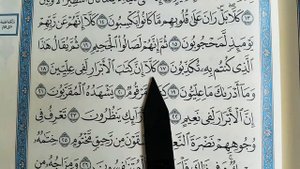 ١٣ كَلَّا بَلْ رَانَ عَلَىٰ قُلُوبِهِم مَّا كَانُوا۟ يَكْسِبُونَ ١٤ كَلَّآ إِنَّهُمْ عَن رَّبِّهِمْ
يَوْمَئِذٍ لَّمَحْجُوبُونَ ١٥ ثُمَّ إِنَّهُمْ لَصَالُوا۟ ٱلْجَحِيمِ ١٦ ثُمَّ يُقَالُ هَٰذَا
ٱلَّذِى كُنتُم بِهِۦ تُكَذِّبُونَ ١٧ كَلَّآ إِنَّ كِتَٰبَ ٱلْأَبْرَارِ لَفِى عِلِّيِّينَ ١٨
وَمَآ أَدْرَىٰكَ مَا عِلِّيُّونَ ١٩ يَشْهَدُهُ ٱلْمُقَرَّبُونَ ٢١
إِنَّ ٱلْأَبْرَارَ لَفِى نَعِيمٍ ٢٢ يَنظُرُونَ ٢٣ تَعْرِفُ فِى
وُجُوهِهِمْ نَضْرَةَ ٱلنَّعِيمِ مِن رَّحِيقٍ مَّخْتُومٍ ٢٥